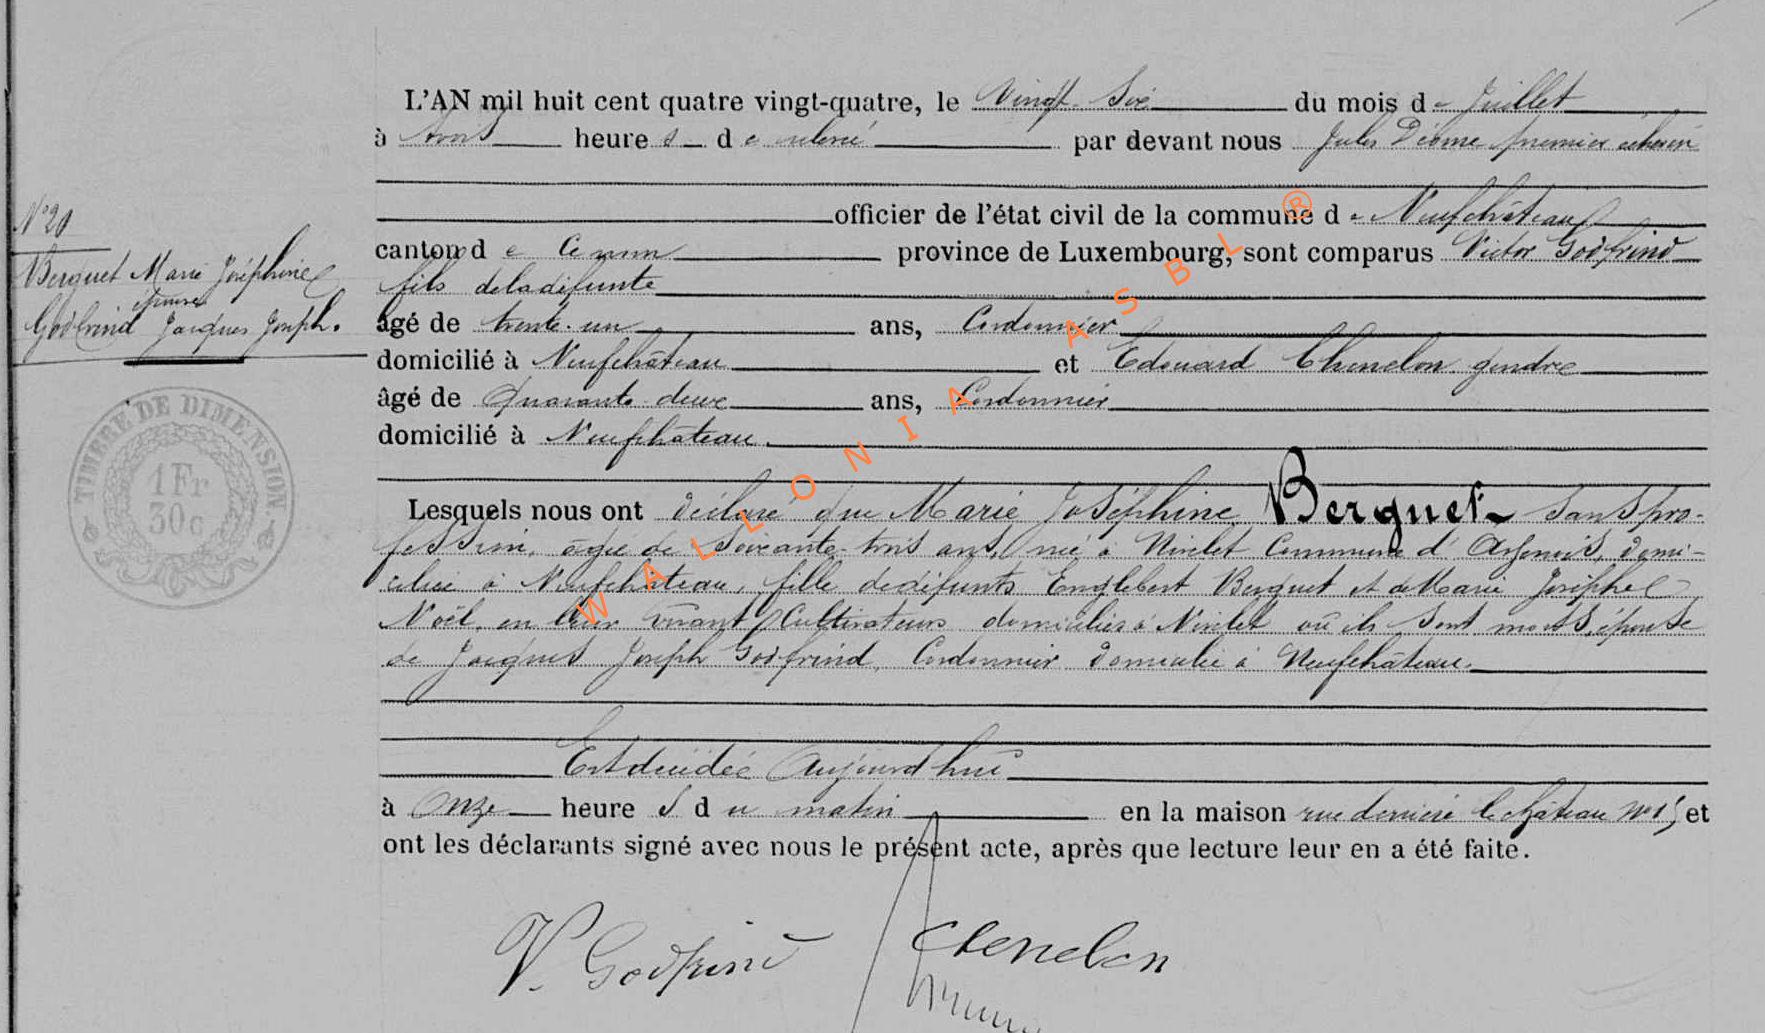 L'AN mil huit cent quatre vingt-quatre, le Vingt-Six du mois de Juillet
à trois heures de relevé par devant nous Jules premier échevin
officier de l'état civil de la commune de Neufchâteau
N° 20
canton de Comm province de Luxembourg, sont comparus Victor Godfrind
Berquet Marie Joséphine
fils de la défunte
épouse
Godfrind Jacques Joseph.
âgé de trente-un ans, Cordonnier
domicilié à Neufchâteau et Edouard Chenelon gendre
âgé de Quarante-deux ans, Cordonnier
domicilié à Neufchâteau.
TIMBRE DE DIMENSION
1 Fr
30 c
Lesquels nous ont déclaré que Marie Joséphine Berquet sans pro-
fession, âgée de Soixante-trois ans, née à Nivelet Commune d'Assenois, domi-
ciliée à Neufchâteau, fille de défunts Englebert Berquet et de Marie Josèphe
Noël, en leur vivant Cultivateurs domiciliés à Nivelet où ils sont morts, épouse
de Jacques Joseph Godfrind, Cordonnier domicilié à Neufchâteau.
Est décédée Aujourd'hui
à Onze heures du matin en la maison rue derrière le château N° 15 et
ont les déclarants signé avec nous le présent acte, après que lecture leur en a été faite.
V. Godfrind Chenelon
WALLONIA ASBL ®